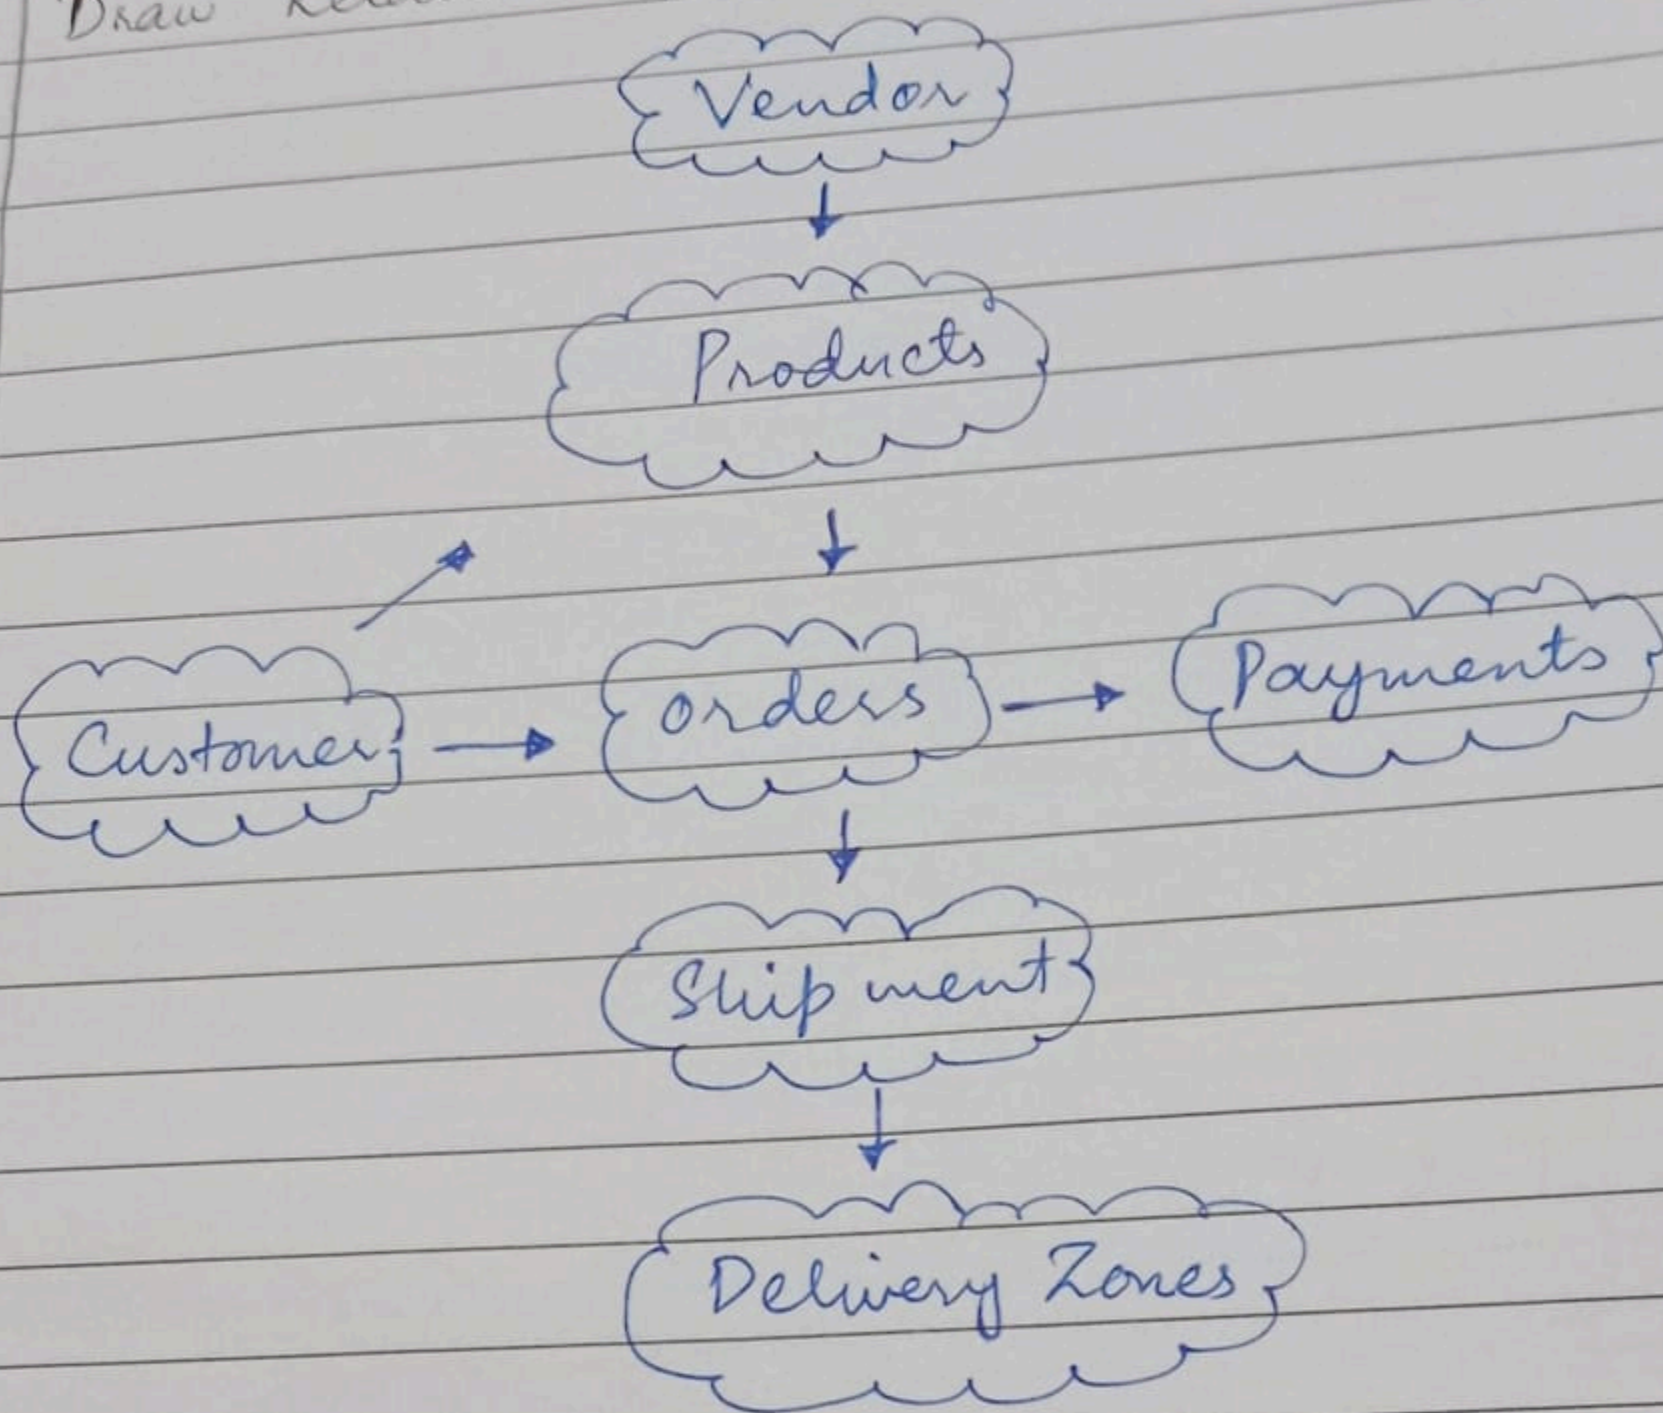 Draw
Vendor
Products
Customer
orders
Payments
Shipment
Delivery Zones